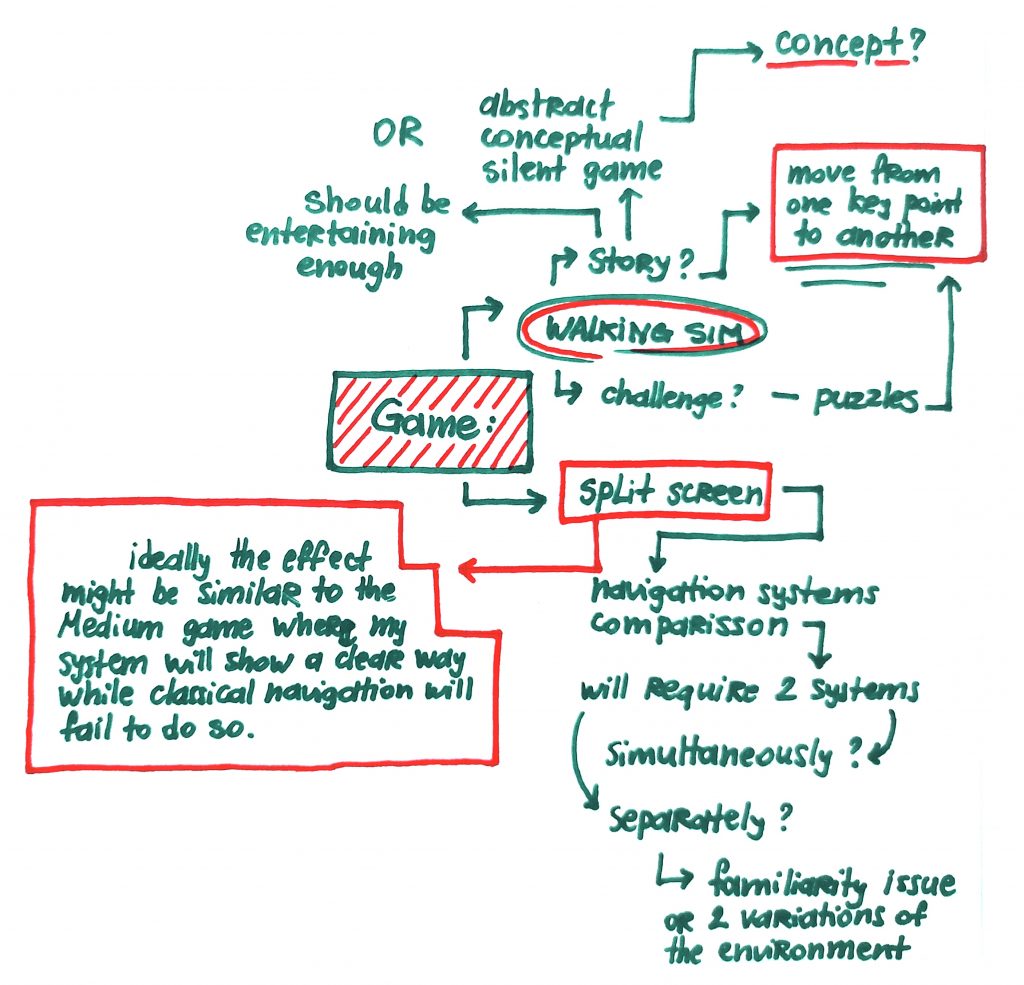 concept?
OR
abstract
conceptual
silent game
should be
entertaining
enough
story?
move from
one key point
to another
WALKING SIM
challenge? — puzzles
Game:
split screen
ideally the effect
might be similar to the
Medium game where my
system will show a clear way
while classical navigation will
fail to do so.
navigation systems
comparisson
will require 2 systems
simultaneously?
separately?
familiarity issue
OR 2 variations of
the environment